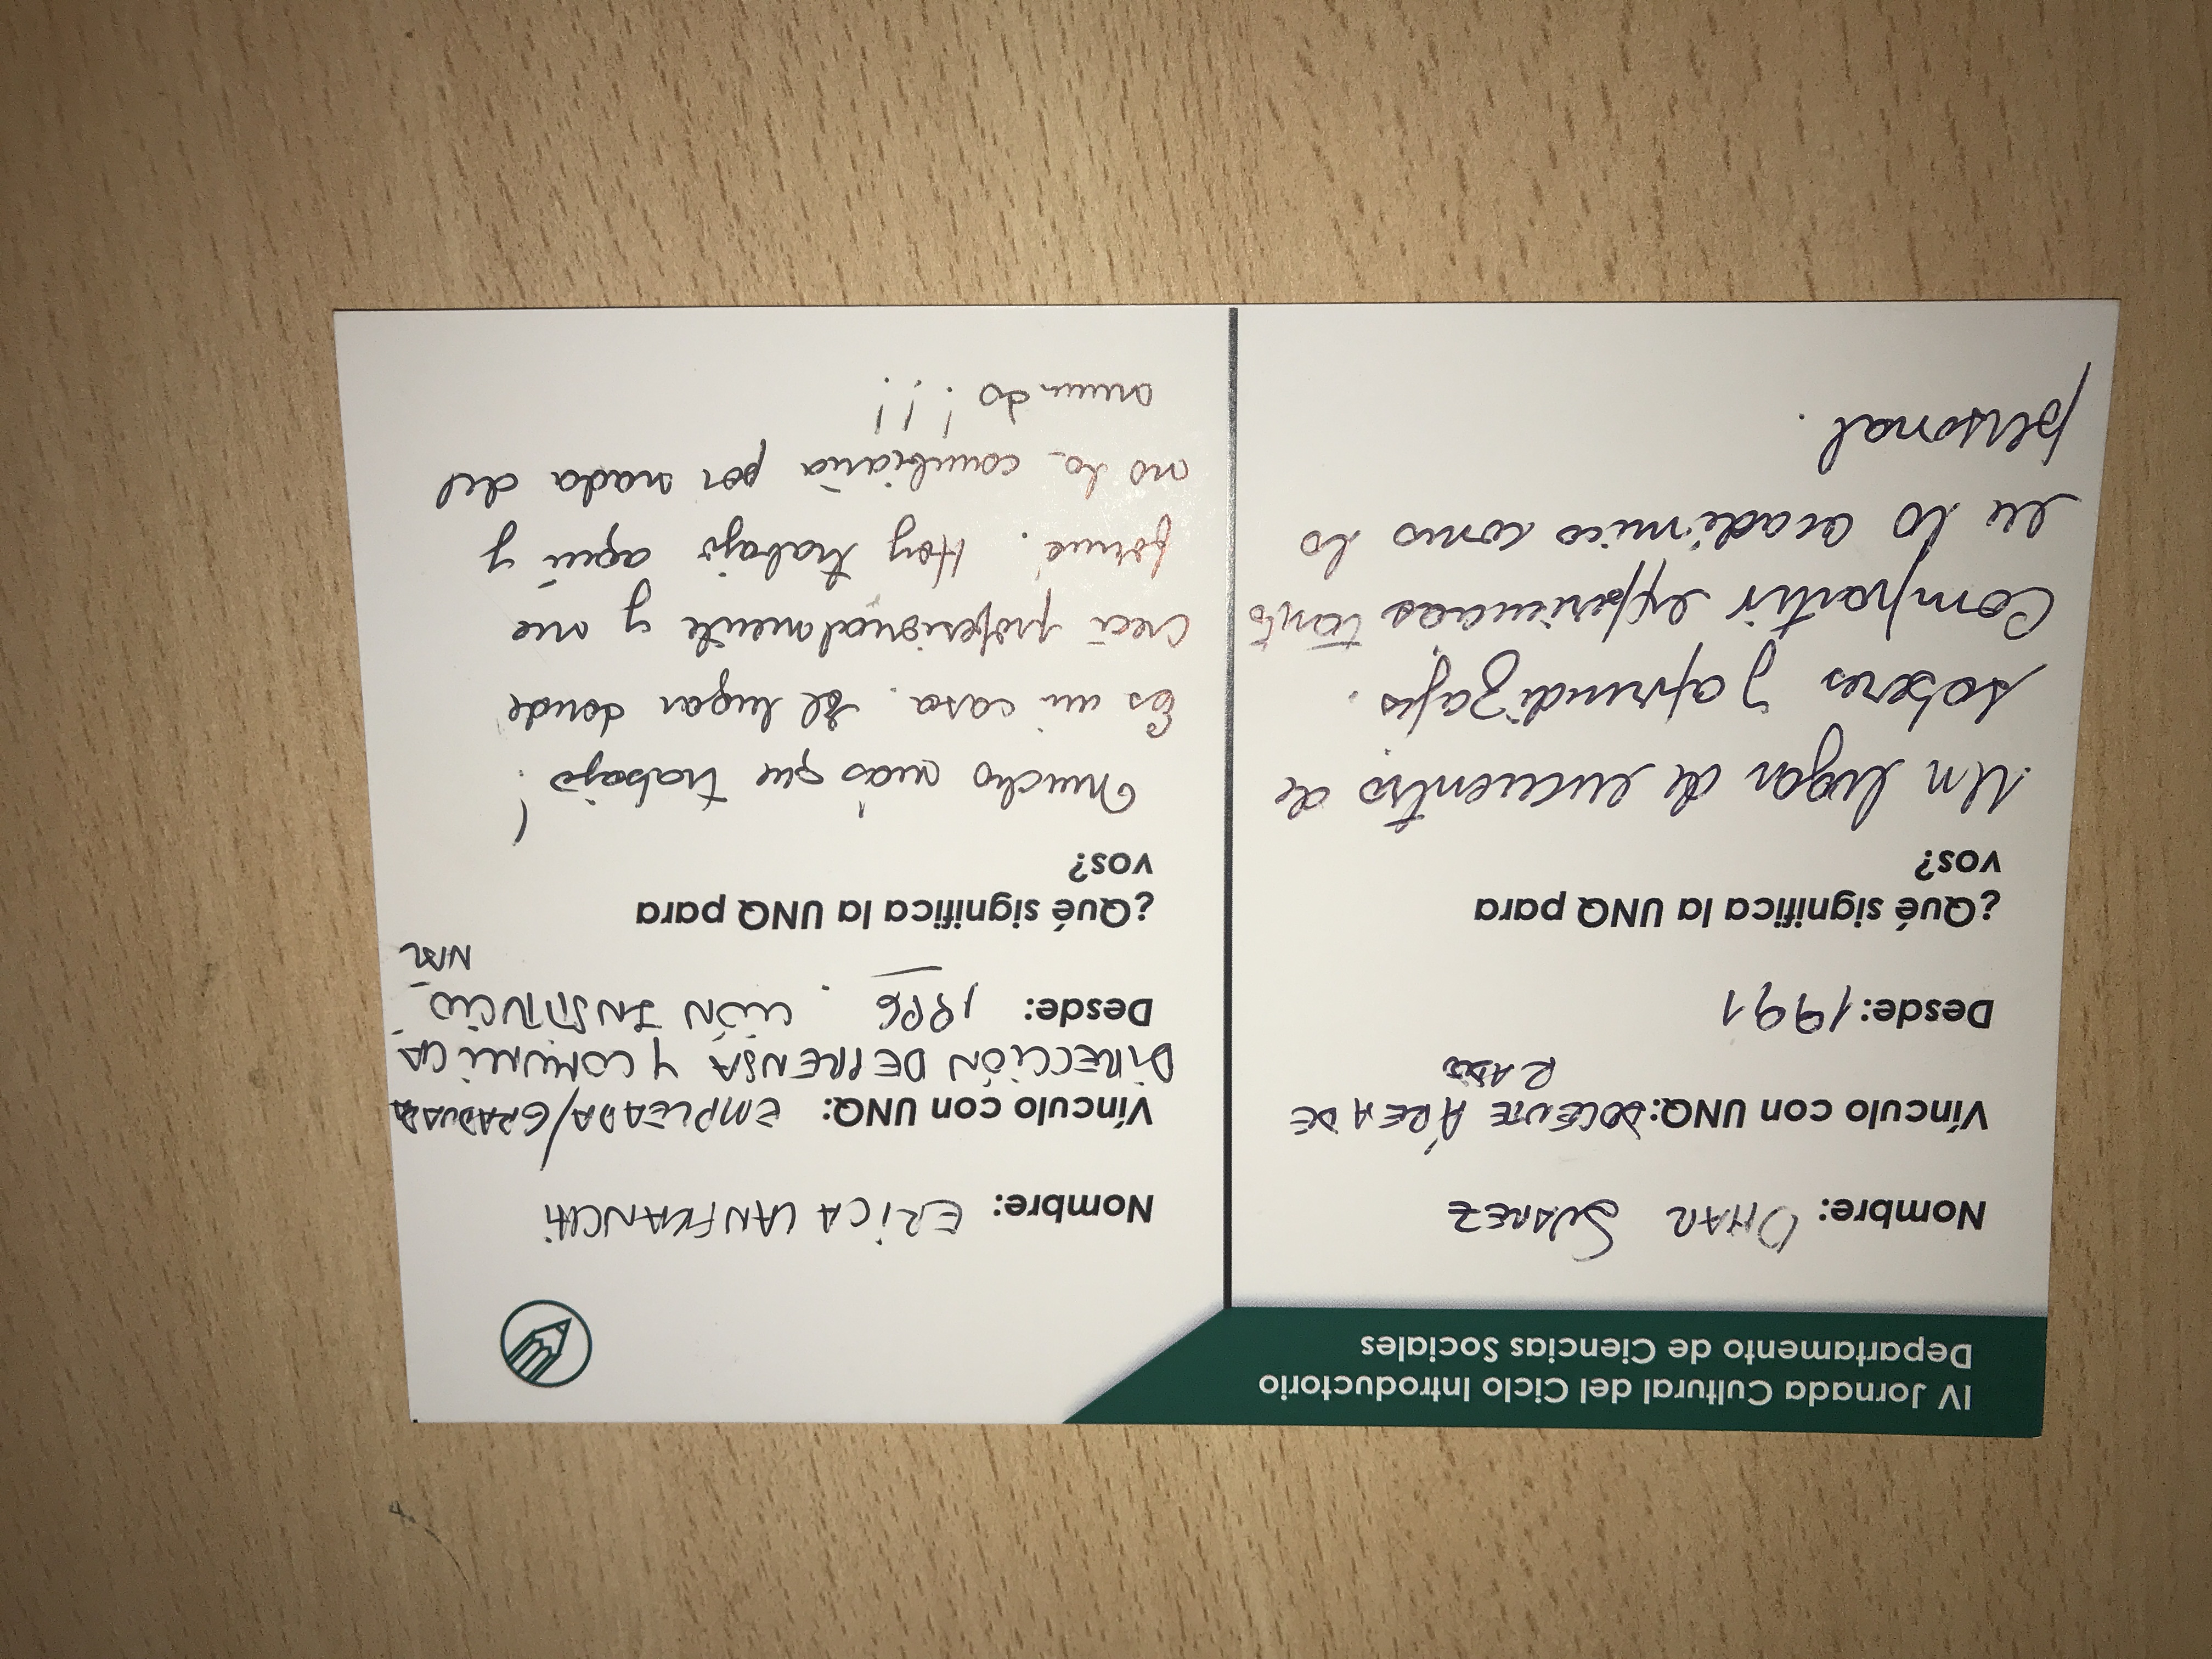 IV Jornada Cultural del Ciclo Introductorio
Departamento de Ciencias Sociales
Nombre: OMAR SUAREZ
Vínculo con UNQ: DOCENTE ÁREA DE
RADIO
Desde: 1991
¿Qué significa la UNQ para
vos?
Un lugar de encuentro de
saberes y aprendizajes.
Compartir experiencias tanto
en lo académico como lo
personal.
Nombre: ERICA LANFRANCHI
Vínculo con UNQ: EMPLEADA/GRADUADA
DIRECCIÓN DE PRENSA Y COMUNICA
Desde: 1996. CIÓN INSTITUCIO-
NAL
¿Qué significa la UNQ para
vos?
Mucho más que trabajo!
Es mi casa. El lugar donde
crecí profesionalmente y me
formé. Hoy trabajo aquí y
no lo cambiaría por nada del
mundo!!!